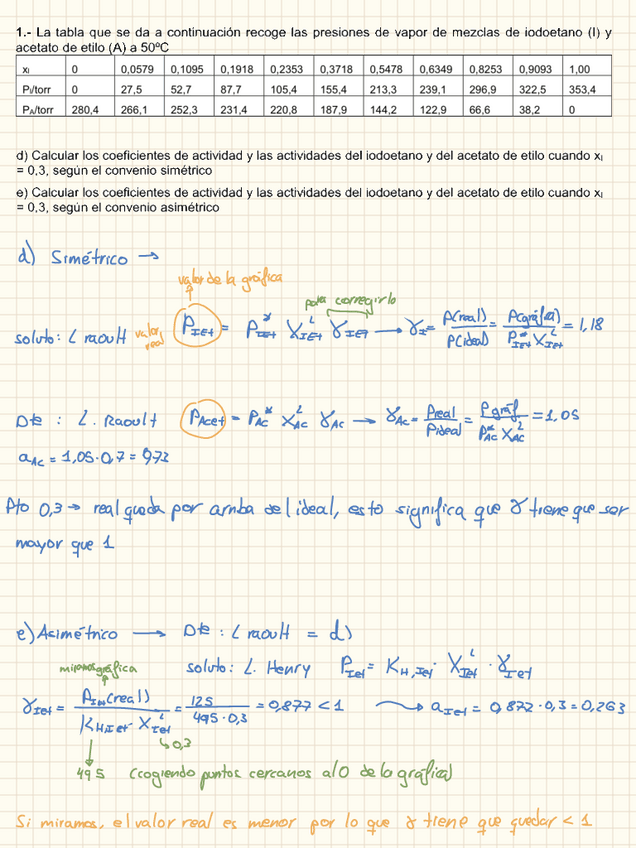 1.- La tabla que se da a continuación recoge las presiones de vapor de mezclas de iodoetano (I) y
acetato de etilo (A) a 50ºC
xI 0 0,0579 0,1095 0,1918 0,2353 0,3718 0,5478 0,6349 0,8253 0,9093 1,00
PI/torr 0 27,5 52,7 87,7 105,4 155,4 213,3 239,1 296,9 322,5 353,4
PA/torr 280,4 266,1 252,3 231,4 220,8 187,9 144,2 122,9 66,6 38,2 0
d) Calcular los coeficientes de actividad y las actividades del iodoetano y del acetato de etilo cuando xI
= 0,3, según el convenio simétrico
e) Calcular los coeficientes de actividad y las actividades del iodoetano y del acetato de etilo cuando xI
= 0,3, según el convenio asimétrico
d) Simétrico →
valor de la gráfica
para corregirlo
soluto: L raoult valor real PIEt = P*IEt XLIEt γIEt → γI = P(real)/P(ideal) = P(gráfica)/P*IEt XLIEt = 1,18
Dte : L. Raoult PAcet = P*AC XLAC γAC → γAC = Preal/Pideal = Pgráf/P*AC XLAC = 1,05
aAC = 1,05·0,7 = 0,72
Pto 0,3 → real queda por arriba del ideal, esto significa que γ tiene que ser
mayor que 1
e) Asimétrico → Dte : L raoult = d)
miramos gráfica
soluto: L. Henry PIet = KH,Iet XLIet · γIet
γIet = PIet(real)/KH,Iet XLIet = 125/495·0,3 = 0,877 < 1 → aIet = 0,872·0,3 = 0,263
↳ 0,3
495 (cogiendo puntos cercanos al 0 de la gráfica)
Si miramos, el valor real es menor por lo que γ tiene que quedar < 1